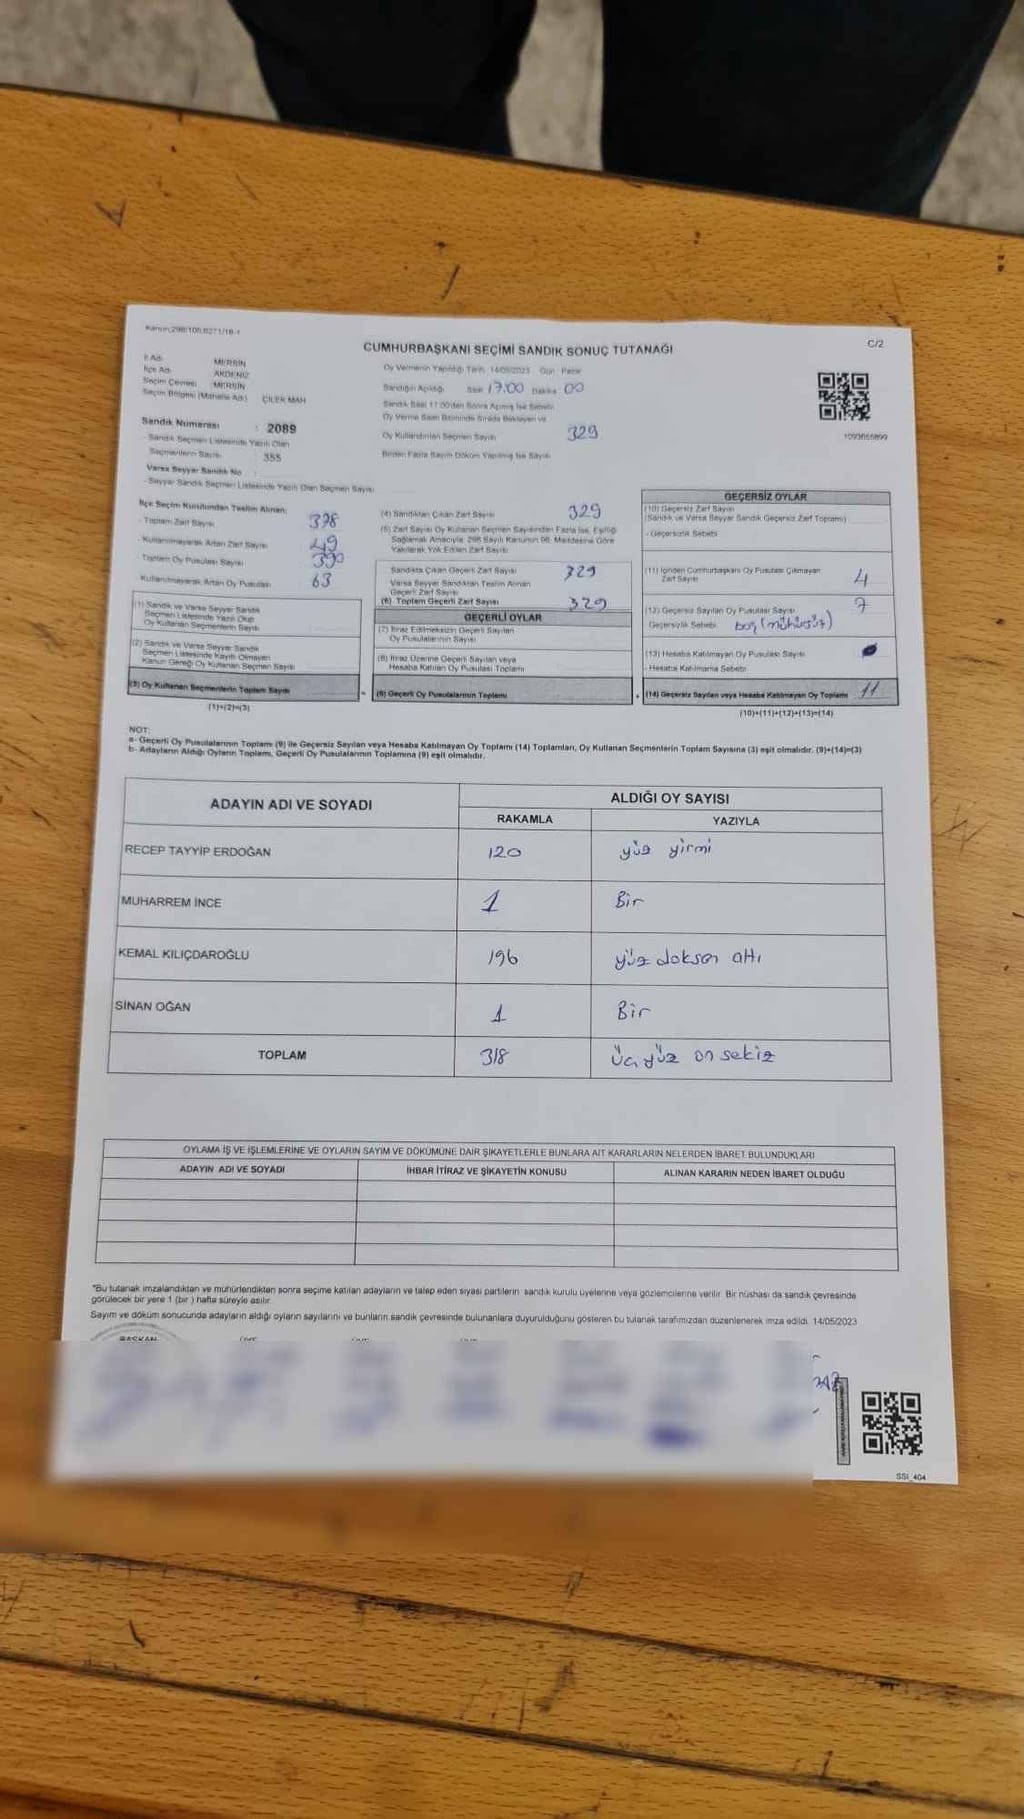 CUMHURBAŞKANI SEÇİMİ SANDIK SONUÇ TUTANAĞI
C/2
İl Adı: MERSİN
İlçe Adı: AKDENİZ
Seçim Çevresi: MERSİN
Seçim Bölgesi (Mahalle Adı) ÇİLEK MAH
Sandık Numarası : 2089
- Sandık Seçmen Listesinde Yazılı Olan
Seçmenlerin Sayısı : 355
Varsa Seyyar Sandık No
- Seyyar Sandık Seçmen Listesinde Yazılı Olan Seçmen Sayısı
Oy Vermenin Yapıldığı Tarih: 14/05/2023 Gün: Pazar
Sandığın Açıldığı Saat 17:00 Dakika 00
Sandık Saat 17:00'den Sonra Açılmış İse Sebebi
Oy Verme Saati Bitiminde Sırada Bekleyen ve
Oy Kullandırılan Seçmen Sayısı 329
Birden Fazla Sayım Döküm Yapılmış İse Sayısı
1093655899
İlçe Seçim Kurulundan Teslim Alınan:
- Toplam Zarf Sayısı 378
- Kullanılmayarak Artan Zarf Sayısı 49
- Toplam Oy Pusulası Sayısı 390
Kullanılmayarak Artan Oy Pusulası 63
(1) Sandık ve Varsa Seyyar Sandık
Seçmen Listesinde Yazılı Olup
Oy Kullanan Seçmenlerin Sayısı
(2) Sandık ve Varsa Seyyar Sandık
Seçmen Listesinde Kayıtlı Olmayan
Kanun Gereği Oy Kullanan Seçmen Sayısı
(3) Oy Kullanan Seçmenlerin Toplam Sayısı
(1)+(2)=(3)
(4) Sandıktan Çıkan Zarf Sayısı 329
(5) Zarf Sayısı Oy Kullanan Seçmen Sayısından Fazla İse, Eşitliği
Sağlamak Amacıyla, 298 Sayılı Kanunun 98. Maddesine Göre
Yakılarak Yok Edilen Zarf Sayısı
Sandıkta Çıkan Geçerli Zarf Sayısı 329
Varsa Seyyar Sandıktan Teslim Alınan
Geçerli Zarf Sayısı
(6) Toplam Geçerli Zarf Sayısı 329
GEÇERLİ OYLAR
(7) İtiraz Edilmeksizin Geçerli Sayılan
Oy Pusulalarının Sayısı
(8) İtiraz Üzerine Geçerli Sayılan veya
Hesaba Katılan Oy Pusulası Toplamı
(9) Geçerli Oy Pusulalarının Toplamı
GEÇERSİZ OYLAR
(10) Geçersiz Zarf Sayısı
(Sandık ve Varsa Seyyar Sandık Geçersiz Zarf Toplamı)
- Geçersizlik Sebebi
(11) İçinden Cumhurbaşkanı Oy Pusulası Çıkmayan
Zarf Sayısı 4
(12) Geçersiz Sayılan Oy Pusulası Sayısı 7
Geçersizlik Sebebi boş (mühürsüz)
(13) Hesaba Katılmayan Oy Pusulası Sayısı
- Hesaba Katılmama Sebebi
(14) Geçersiz Sayılan veya Hesaba Katılmayan Oy Toplamı 11
(10)+(11)+(12)+(13)=(14)
NOT:
a- Geçerli Oy Pusulalarının Toplamı (9) ile Geçersiz Sayılan veya Hesaba Katılmayan Oy Toplamı (14) Toplamları, Oy Kullanan Seçmenlerin Toplam Sayısına (3) eşit olmalıdır. (9)+(14)=(3)
b- Adayların Aldığı Oyların Toplamı, Geçerli Oy Pusulalarının Toplamına (9) eşit olmalıdır.
ADAYIN ADI VE SOYADI
ALDIĞI OY SAYISI
RAKAMLA YAZIYLA
RECEP TAYYİP ERDOĞAN 120 yüz yirmi
MUHARREM İNCE 1 Bir
KEMAL KILIÇDAROĞLU 196 yüz doksan altı
SİNAN OĞAN 1 Bir
TOPLAM 318 üçyüz on sekiz
OYLAMA İŞ VE İŞLEMLERİNE VE OYLARIN SAYIM VE DÖKÜMÜNE DAİR ŞİKAYETLERLE BUNLARA AİT KARARLARIN NELERDEN İBARET BULUNDUKLARI
ADAYIN ADI VE SOYADI İHBAR İTİRAZ VE ŞİKAYETİN KONUSU ALINAN KARARIN NEDEN İBARET OLDUĞU
*Bu tutanak imzalandıktan ve mühürlendikten sonra seçime katılan adayların ve talep eden siyasi partilerin sandık kurulu üyelerine veya gözlemcilerine verilir. Bir nüshası da sandık çevresinde
görülecek bir yere 1 (bir ) hafta süreyle asılır.
Sayım ve döküm sonucunda adayların aldığı oyların sayılarını ve bunların sandık çevresinde bulunanlara duyurulduğunu gösteren bu tutanak tarafımızdan düzenlenerek imza edildi. 14/05/2023
BAŞKAN
SSI_404